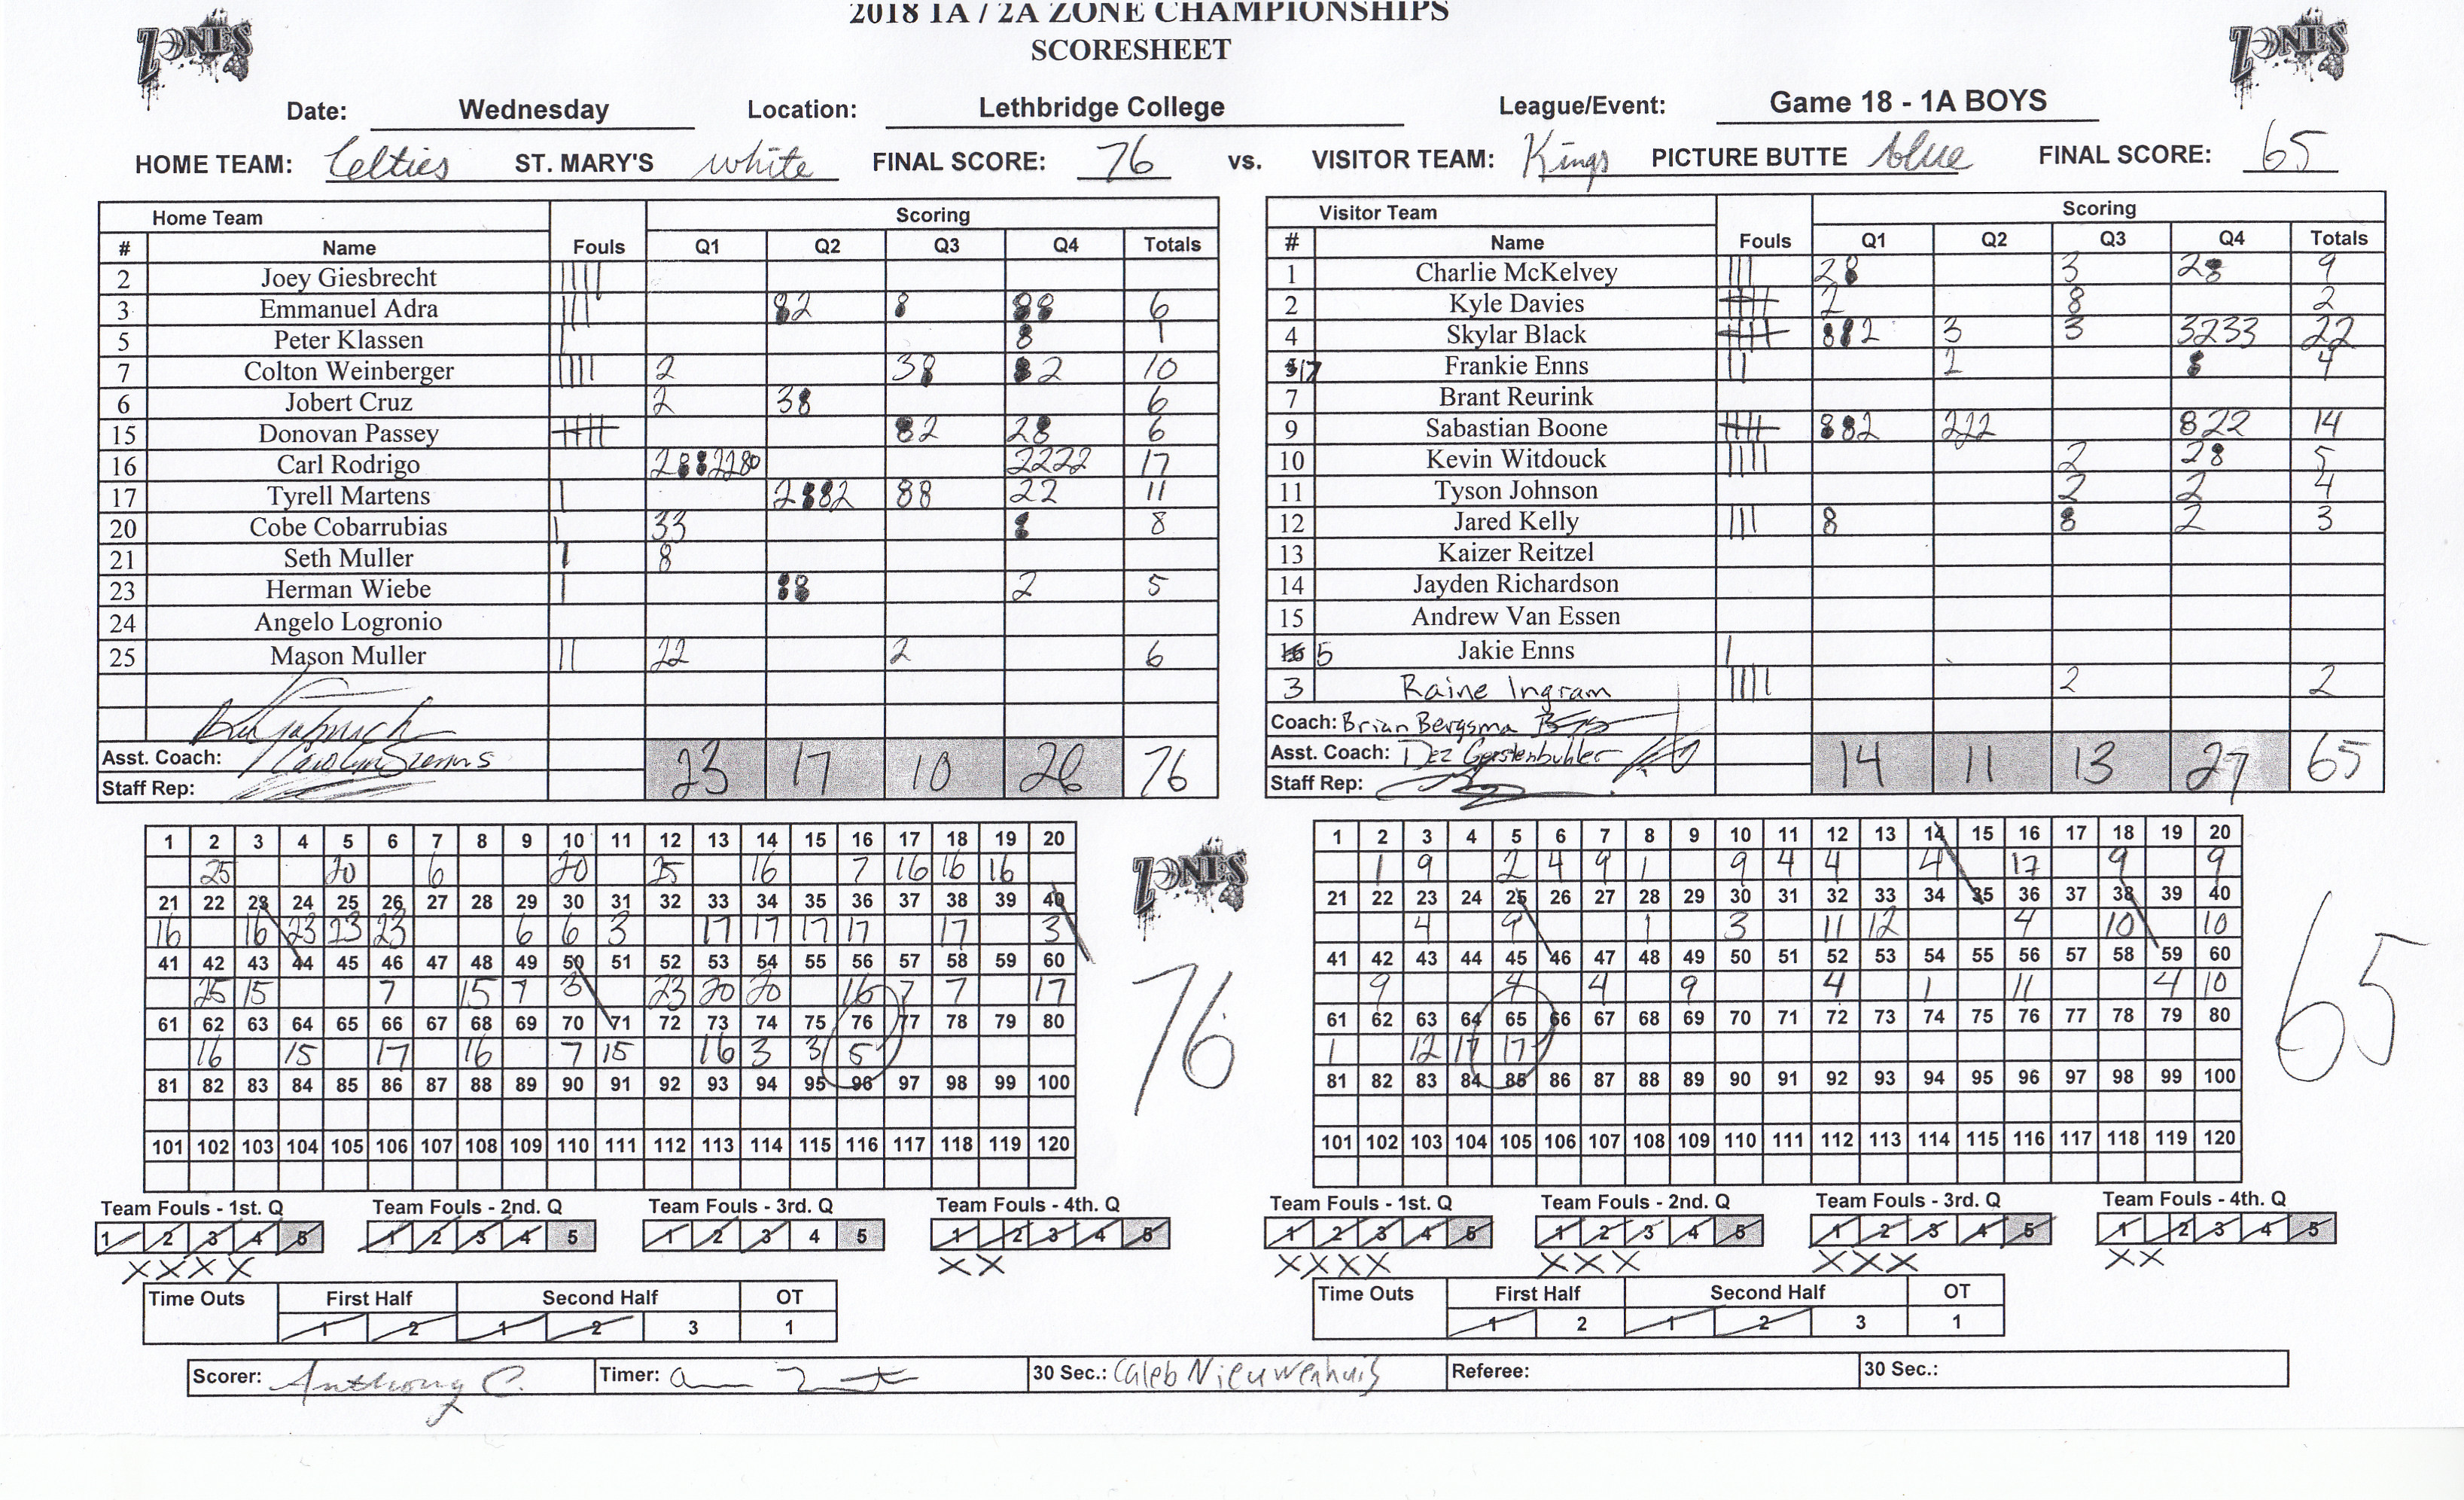 2018 1A / 2A ZONE CHAMPIONSHIPS
ZONES SCORESHEET ZONES
Date: Wednesday Location: Lethbridge College League/Event: Game 18 - 1A BOYS
HOME TEAM: Celtics ST. MARY'S white FINAL SCORE: 76 vs. VISITOR TEAM: Kings PICTURE BUTTE blue FINAL SCORE: 65
Home Team Fouls Scoring
# Name Q1 Q2 Q3 Q4 Totals
2 Joey Giesbrecht
3 Emmanuel Adra 82 8 88 6
5 Peter Klassen 8 1
7 Colton Weinberger 2 38 82 10
6 Jobert Cruz 2 38 6
15 Donovan Passey 82 28 6
16 Carl Rodrigo 2222 17
17 Tyrell Martens 2882 88 22 11
20 Cobe Cobarrubias 33 8 8
21 Seth Muller 8
23 Herman Wiebe 88 2 5
24 Angelo Logronio
25 Mason Muller 22 2 6
Asst. Coach:
Staff Rep:
23 17 10 26 76
Visitor Team Fouls Scoring
# Name Q1 Q2 Q3 Q4 Totals
1 Charlie McKelvey 28 3 28 9
2 Kyle Davies 2 8 2
4 Skylar Black 882 3 3 3233 22
17 Frankie Enns 2 8 4
7 Brant Reurink
9 Sabastian Boone 882 222 822 14
10 Kevin Witdouck 2 28 5
11 Tyson Johnson 2 2 4
12 Jared Kelly 8 8 2 3
13 Kaizer Reitzel
14 Jayden Richardson
15 Andrew Van Essen
5 Jakie Enns
3 Raine Ingram 2 2
Coach: Brian Bergsma
Asst. Coach: Dez Gerstenbuhler
Staff Rep:
14 11 13 27 65
1 2 3 4 5 6 7 8 9 10 11 12 13 14 15 16 17 18 19 20
25 20 6 20 25 16 7 16 16 16
21 22 23 24 25 26 27 28 29 30 31 32 33 34 35 36 37 38 39 40
16 16 23 23 23 6 6 3 17 17 17 17 17 3
41 42 43 44 45 46 47 48 49 50 51 52 53 54 55 56 57 58 59 60
25 15 7 15 7 3 23 20 20 16 7 7 17
61 62 63 64 65 66 67 68 69 70 71 72 73 74 75 76 77 78 79 80
16 15 17 16 7 15 16 3 3 5
81 82 83 84 85 86 87 88 89 90 91 92 93 94 95 96 97 98 99 100
101 102 103 104 105 106 107 108 109 110 111 112 113 114 115 116 117 118 119 120
ZONES
76
1 2 3 4 5 6 7 8 9 10 11 12 13 14 15 16 17 18 19 20
1 9 2 4 9 1 9 4 4 4 17 9 9
21 22 23 24 25 26 27 28 29 30 31 32 33 34 35 36 37 38 39 40
4 9 1 3 11 12 4 10 10
41 42 43 44 45 46 47 48 49 50 51 52 53 54 55 56 57 58 59 60
9 4 4 9 4 1 11 4 10
61 62 63 64 65 66 67 68 69 70 71 72 73 74 75 76 77 78 79 80
1 12 17 17
81 82 83 84 85 86 87 88 89 90 91 92 93 94 95 96 97 98 99 100
101 102 103 104 105 106 107 108 109 110 111 112 113 114 115 116 117 118 119 120
65
Team Fouls - 1st. Q Team Fouls - 2nd. Q Team Fouls - 3rd. Q Team Fouls - 4th. Q
1 2 3 4 5 1 2 3 4 5 1 2 3 4 5 1 2 3 4 5
XXXX XX
Time Outs First Half Second Half OT
1 2 1 2 3 1
Team Fouls - 1st. Q Team Fouls - 2nd. Q Team Fouls - 3rd. Q Team Fouls - 4th. Q
1 2 3 4 5 1 2 3 4 5 1 2 3 4 5 1 2 3 4 5
XXXX XXX XXX XX
Time Outs First Half Second Half OT
1 2 1 2 3 1
Scorer: Anthony C. Timer: 30 Sec.: Caleb Nieuwenhuis Referee: 30 Sec.: